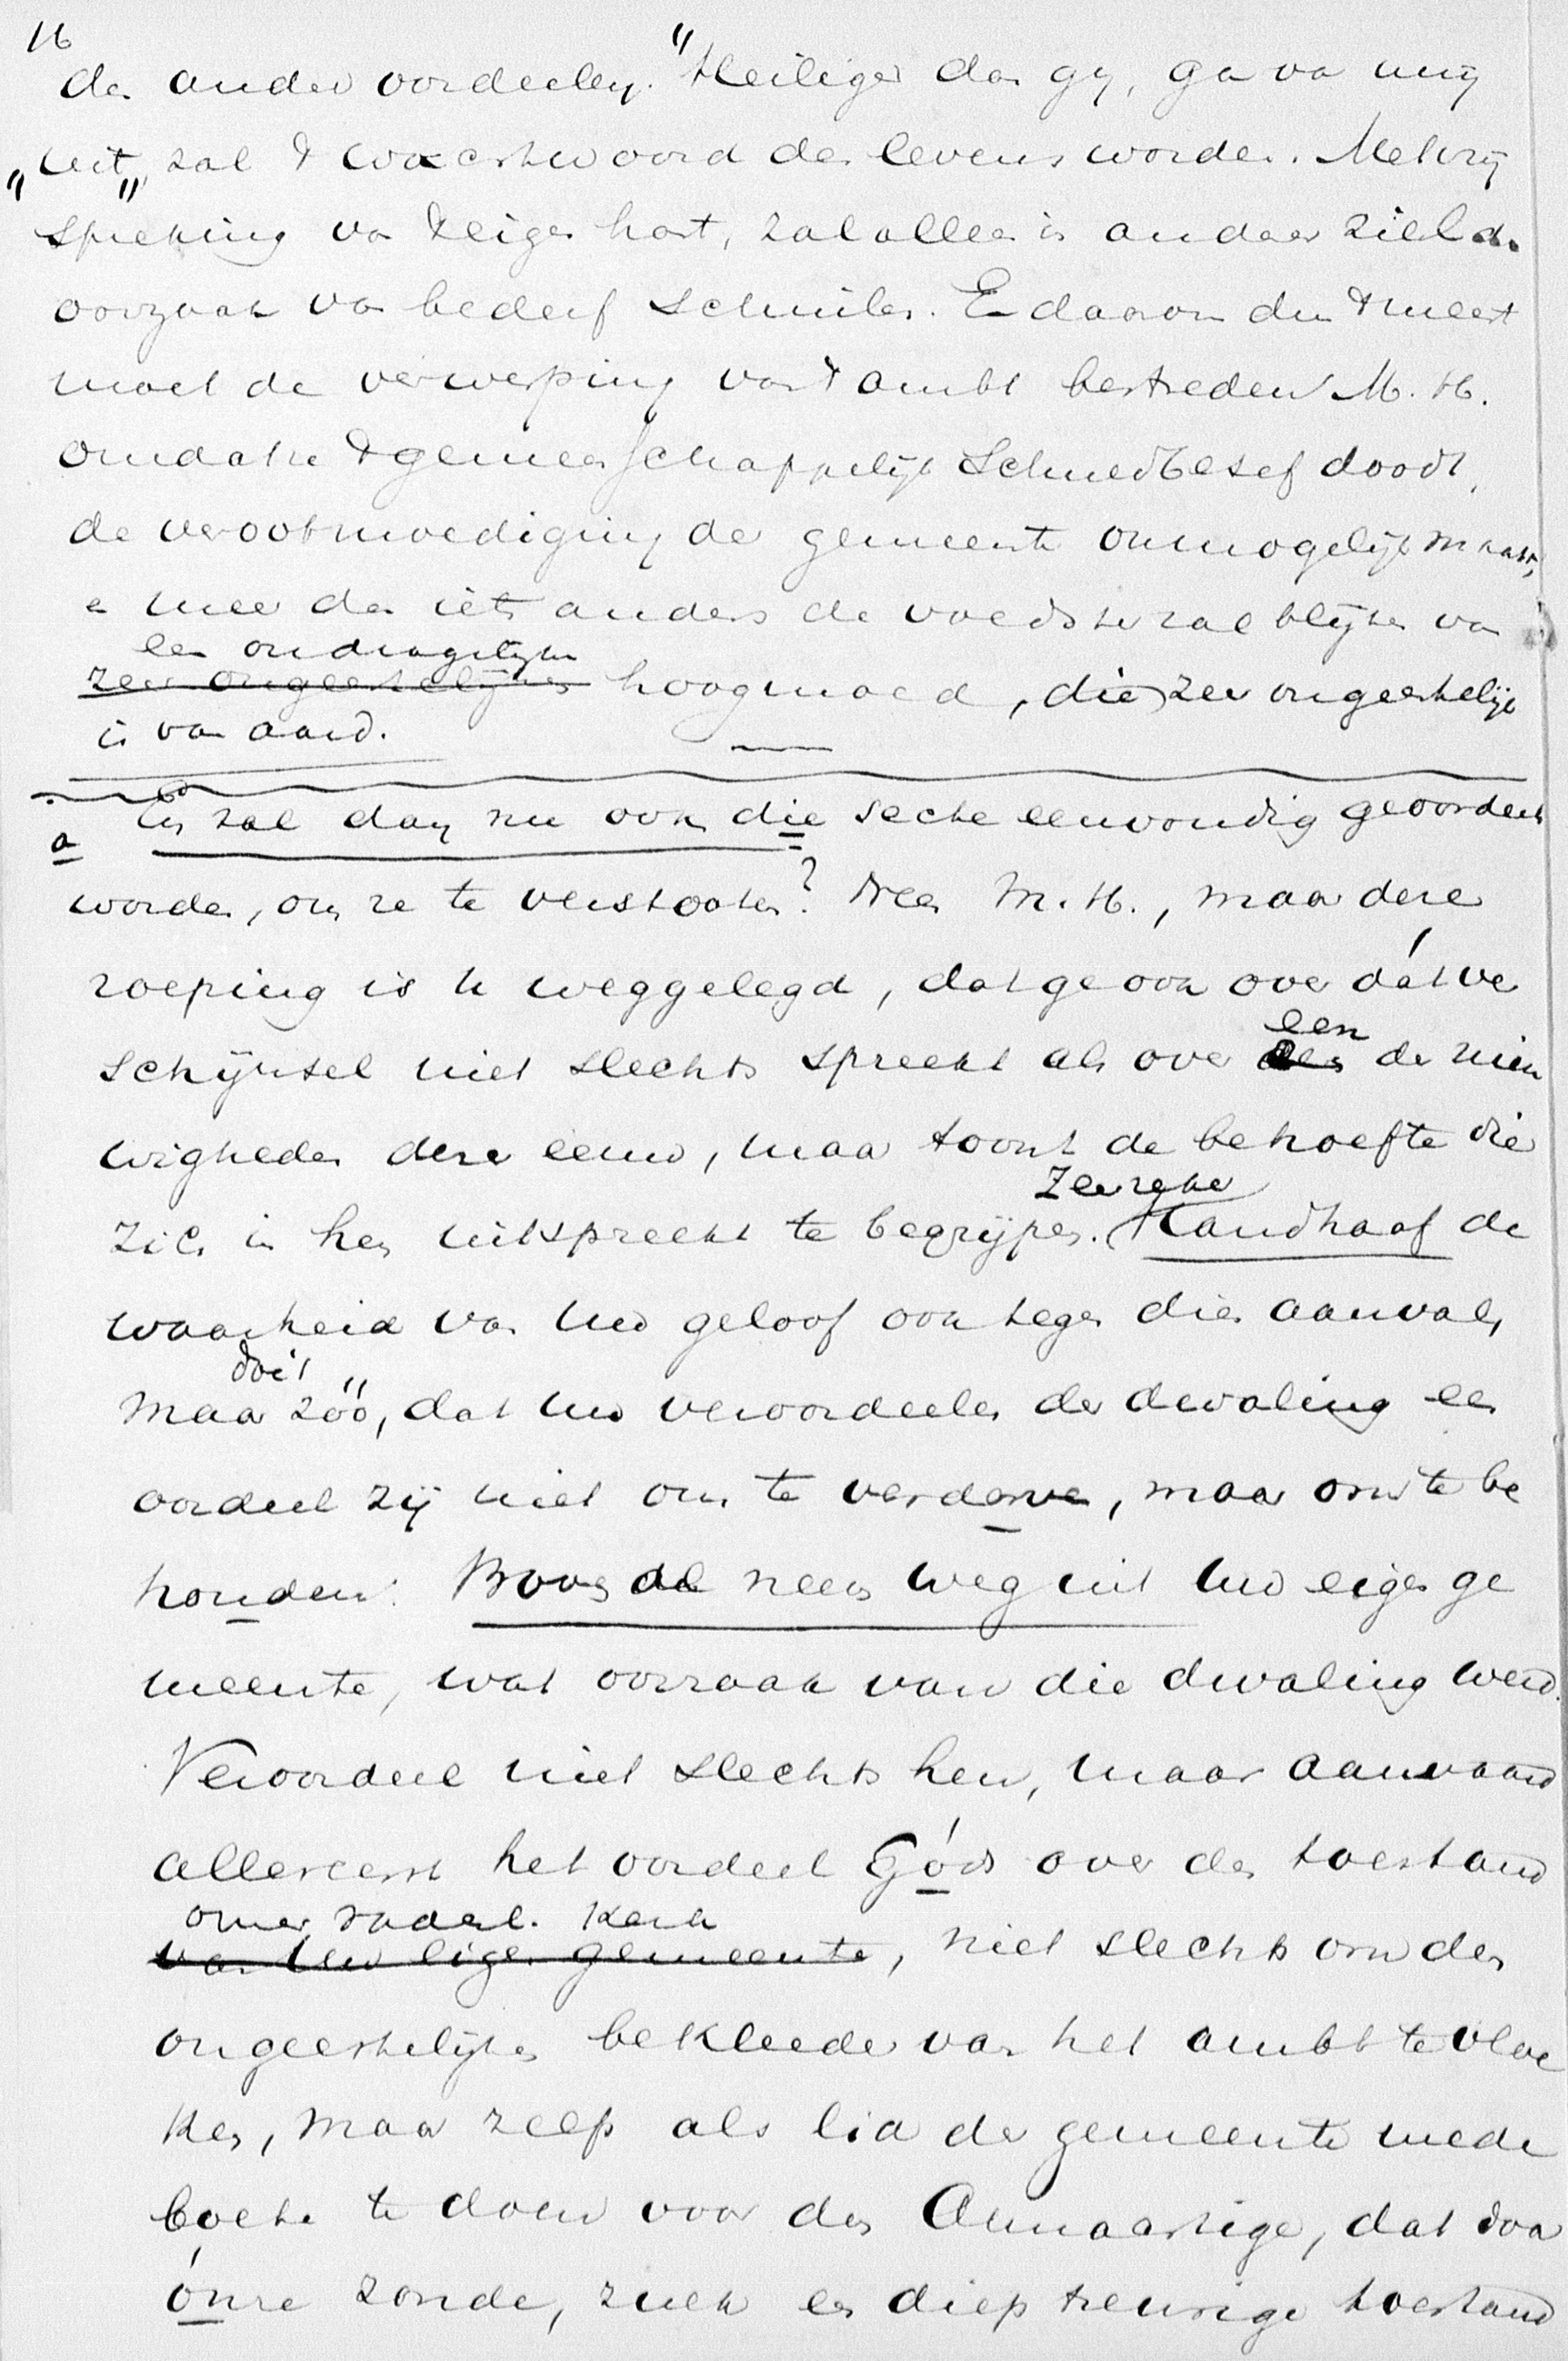 16
de ander oordeelen. "Heiliger dan gy, ga van mij
"uit", zal 't wachtwoord des levens worden. Met vrij
spreking van 't eigen hart, zal alleen in anders ziel de
oorzaak van bederf schuilen. En daarom du 't meest
moet de verwerping van 't ambt bestreden M. H.
omdat ze 't gemeenschappelijk schuldbesef doodt,
de verootmoediging der gemeente onmogelijk maakt,
en meer dan iets anders de voedster zal blijken van
een ondragelijken
zeer ongeestelijken hoogmoed, die zeer ongeestelijk
is van aard.
a En zal dan nu ook die secte eenvoudig geoordeeld
worden, om ze te verstooten? Neen M. H., maar deze
roeping is u weggelegd, dat ge ook over dát ver
schijnsel niet slechts spreekt als over een der nieu
wigheden dezer eeuw, maar toont de behoefte die
zich in hen uitspreekt te begrijpen. Handhaaf de
waarheid van uw geloof ook tegen dien aanval,
doe 't
maar zóó, dat uw veroordeelen der dwaling een
oordeel zij niet om te verderven, maar om te be
houden. Boven al neem weg uit uw eigen ge
meente, wat oorzaak van die dwaling werd.
Veroordeel niet slechts hen, maar aanvaard
allereerst het oordeel Góds over den toestand
onzer vaderl. Kerk
van uw eigen gemeente, niet slechts om den
ongeestelijken bekleeder van het ambt te vloe
ken, maar zelf als lid der gemeente mede
boete te doen voor den Almachtige, dat door
ónze zonde, zulk een diep treurige toestand